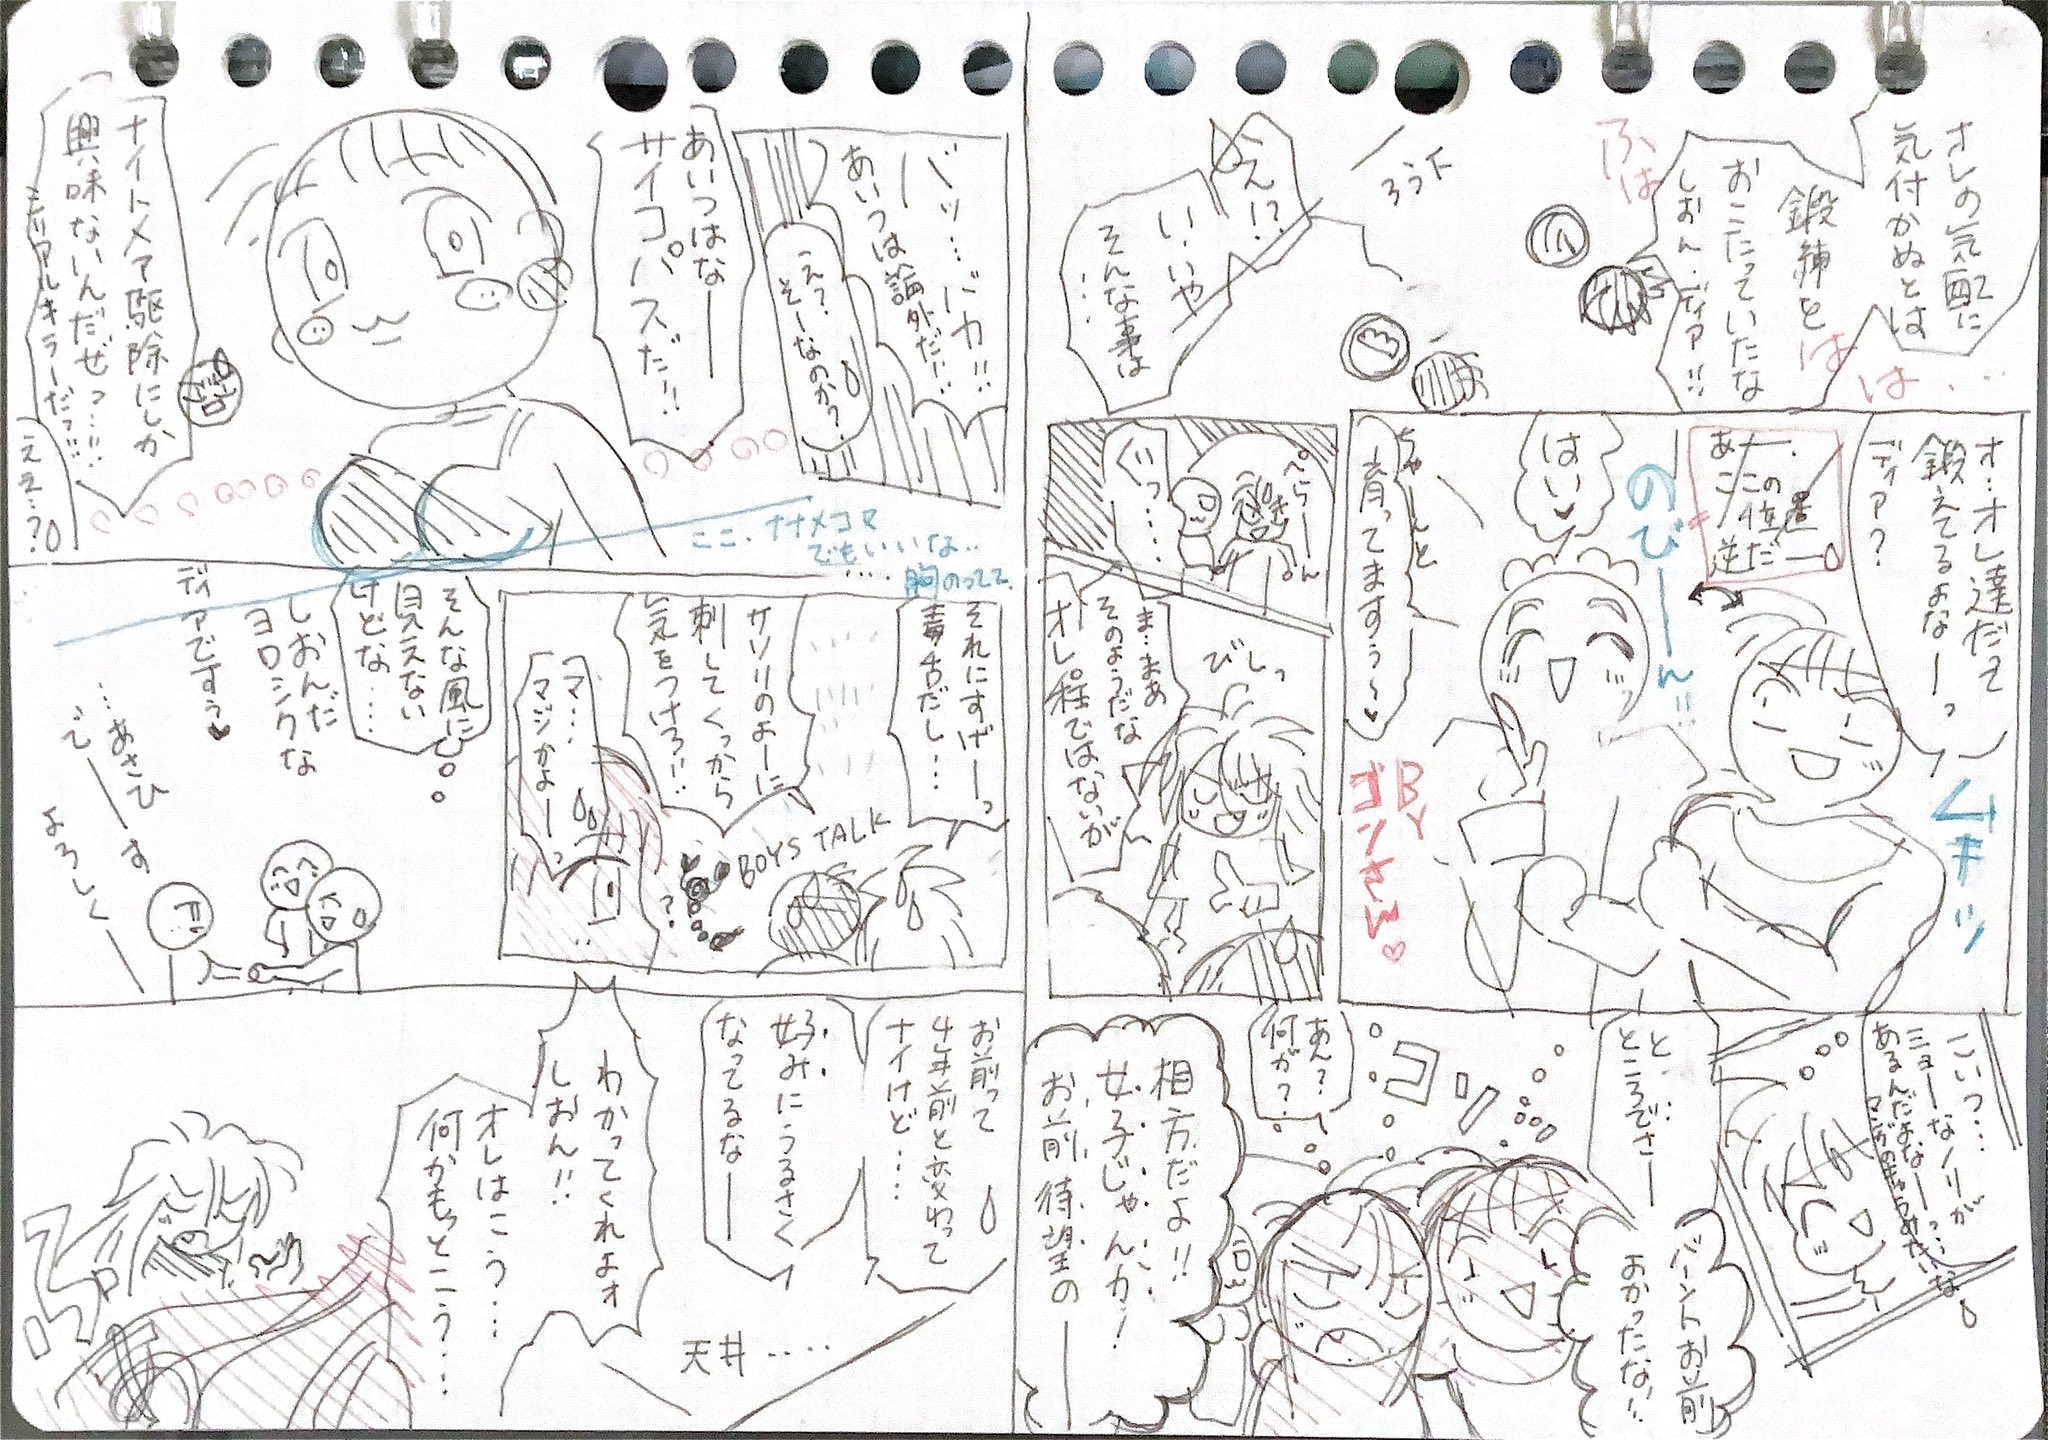 オレの気配に
気付かぬとは
鍛練を
おこたっていたな
しおん・ディア!!
ふは
はは…
ろう下
え!?
い、いや
そんな事は
…
オ…オレ達だって
鍛えてるよなーっ
ディア?
あー、
ここの位置
逆だー
はい♥
のびーーん!!
ちゃーんと
育ってますぅ~♥
ムキッ
BY
ゴンさん♡
ぺらーーん
びしっ
ま…まあ
そのようだな
オレ程ではないが
こいつ…
ミョーなノリが
あるんだよなーっ…
と…
ところでさー
バーントお前
よかったな!!
コソ
あん?
何が?
相方だよ!!
女子じゃんか!
お前待望のーー
バッ…バカ!!
あいつは論外だ…
え?
そーなのか?
あいつはなーー
サイコパスだ!!
ナイトメア駆除にしか
興味ないんだぜっ…!!
シリアルキラーだっ…!!
ええ…?
ここ、ナナメコマ
でもいいな…
胸のってて
それにすげーっ
毒舌だし…
サソリのよーに
刺してくっから
気をつけろ!!
BOYS TALK
?
マ…
マジかよーっ
そんな風に
見えない
けどな…
しおんだ
ヨロシクな
ディアですぅ♥
…あさひ
でーーす
よろしくー
お前って
4年前と変わって
ナイけど…
好みにうるさく
なってるなーー
わかってくれよォ
しおん!!
オレはこう…
何かもっとこう…
天井…